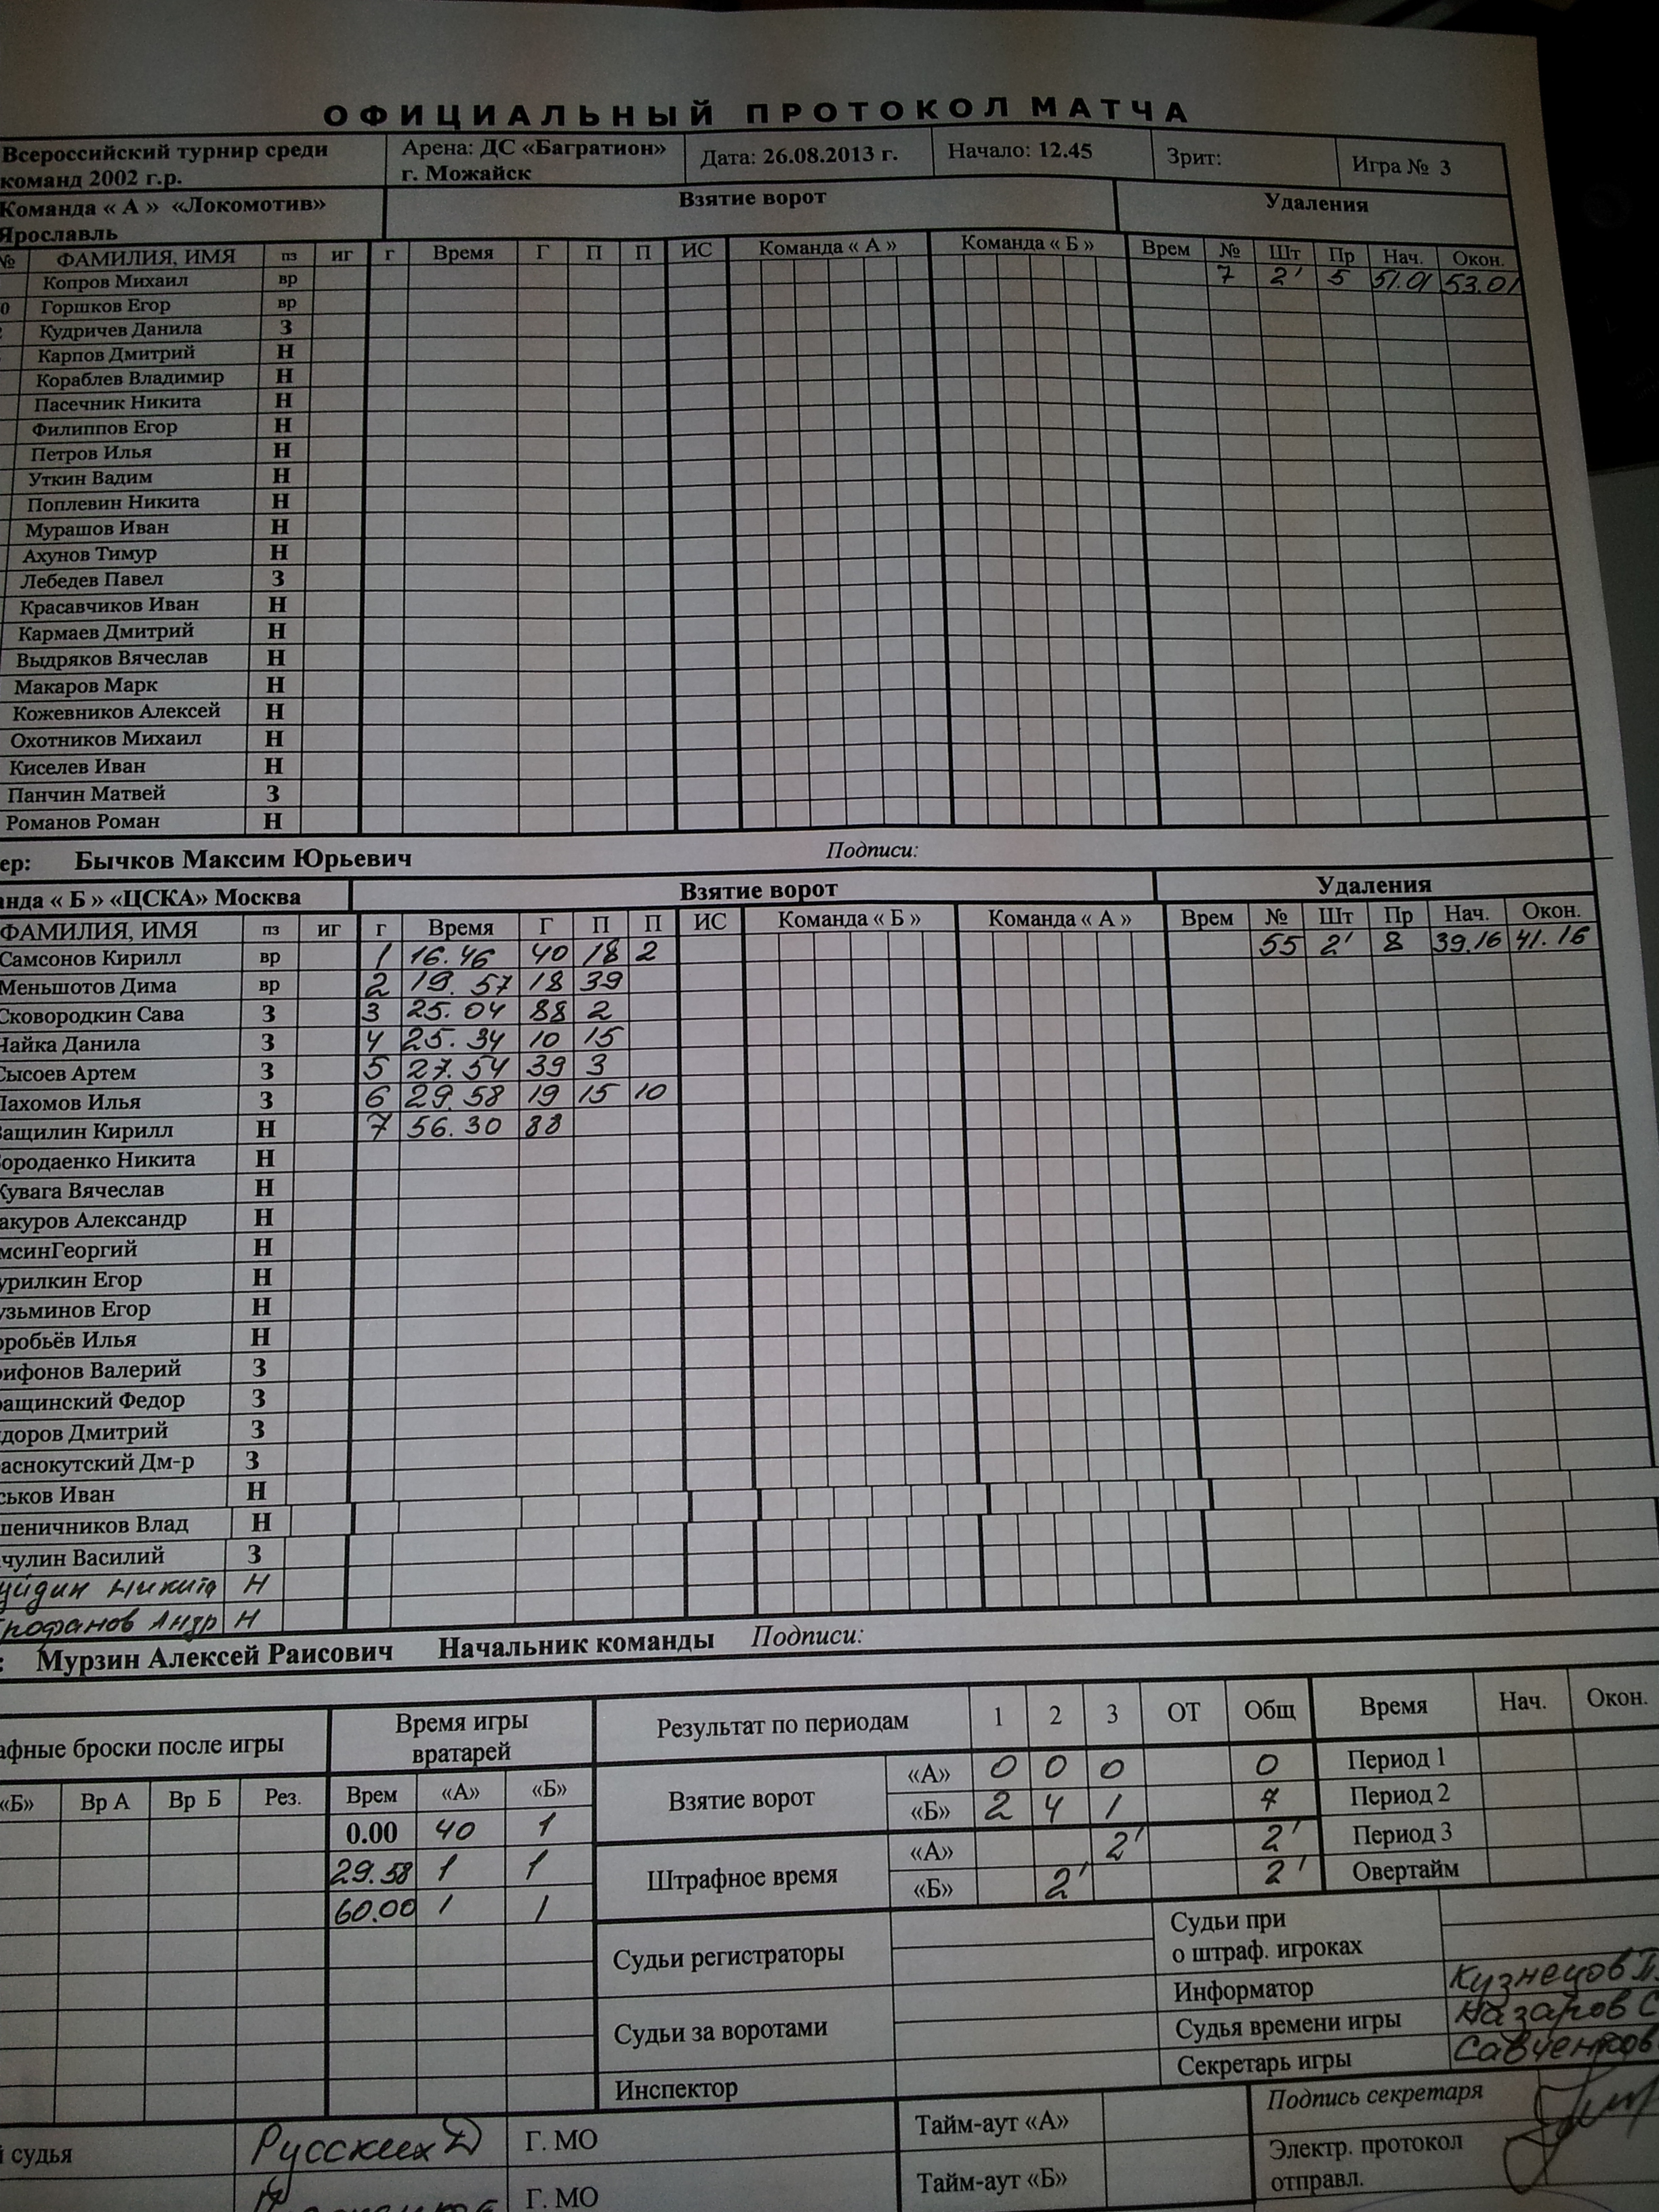 ОФИЦИАЛЬНЫЙ ПРОТОКОЛ МАТЧА
Всероссийский турнир среди команд 2002 г.р. Арена: ДС «Багратион» г. Можайск Дата: 26.08.2013 г. Начало: 12.45 Зрит: Игра № 3
Команда « А » «Локомотив» Ярославль Взятие ворот Удаления
№ ФАМИЛИЯ, ИМЯ пз иг г Время Г П П ИС Команда « А » Команда « Б » Врем № Шт Пр Нач. Окон.
Копров Михаил вр 7 2' 5 51.01 53.01
0 Горшков Егор вр
Кудричев Данила З
Карпов Дмитрий Н
Кораблев Владимир Н
Пасечник Никита Н
Филиппов Егор Н
Петров Илья Н
Уткин Вадим Н
Поплевин Никита Н
Мурашов Иван Н
Ахунов Тимур Н
Лебедев Павел З
Красавчиков Иван Н
Кармаев Дмитрий Н
Выдряков Вячеслав Н
Макаров Марк Н
Кожевников Алексей Н
Охотников Михаил Н
Киселев Иван Н
Панчин Матвей З
Романов Роман Н
ер: Бычков Максим Юрьевич Подписи:
нда « Б » «ЦСКА» Москва Взятие ворот Удаления
ФАМИЛИЯ, ИМЯ пз иг г Время Г П П ИС Команда « Б » Команда « А » Врем № Шт Пр Нач. Окон.
Самсонов Кирилл вр 1 16.46 40 18 2 55 2' 8 39.16 41.16
Меньшотов Дима вр 2 19.57 18 39
Сковородкин Сава З 3 25.04 88 2
Чайка Данила З 4 25.34 10 15
Сысоев Артем З 5 27.54 39 3
Пахомов Илья З 6 29.58 19 15 10
Защилин Кирилл Н 7 56.30 88
ородаенко Никита Н
Кувага Вячеслав Н
акуров Александр Н
мсинГеоргий Н
урилкин Егор Н
узьминов Егор Н
оробьёв Илья Н
рифонов Валерий З
ращинский Федор З
доров Дмитрий З
аснокутский Дм-р З
ськов Иван Н
шеничников Влад Н
чулин Василий З
уйдин Никита Н
трофанов Андр Н
: Мурзин Алексей Раисович Начальник команды Подписи:
афные броски после игры Время игры вратарей Результат по периодам 1 2 3 ОТ Общ Время Нач. Окон.
«Б» Вр А Вр Б Рез. Врем «А» «Б» Взятие ворот «А» 0 0 0 0 Период 1
0.00 40 1 «Б» 2 4 1 7 Период 2
29.58 1 1 Штрафное время «А» 2' 2' Период 3
60.00 1 1 «Б» 2' 2' Овертайм
Судьи регистраторы Судьи при о штраф. игроках
Информатор Кузнецов П.
Судьи за воротами Судья времени игры Назаров С
Секретарь игры
Инспектор Подпись секретаря
й судья Русских Д Г. МО Тайм-аут «А» Электр. протокол отправл.
Г. МО Тайм-аут «Б»